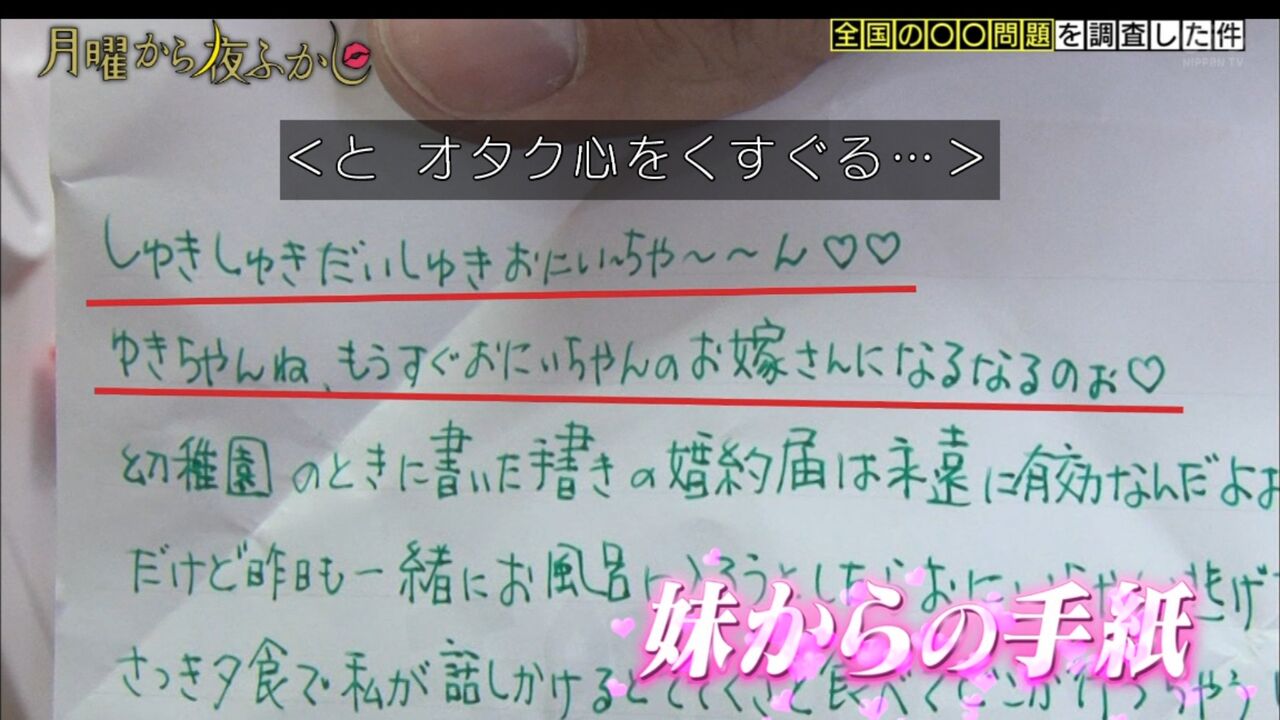 月曜から夜ふかし
全国の〇〇問題を調査した件
NIPPON TV
<と オタク心をくすぐる…>
しゅきしゅきだいしゅきおにい~ちゃ~~ん♡♡
ゆきちゃんね、もうすぐおにいちゃんのお嫁さんになるなるのぉ♡
幼稚園のときに書いた手書きの婚約届は永遠に有効なんだよぉ
だけど昨日も一緒にお風呂に入ろうとしたらおにいちゃん逃げ
さっき夕食で私が話しかけると
妹からの手紙